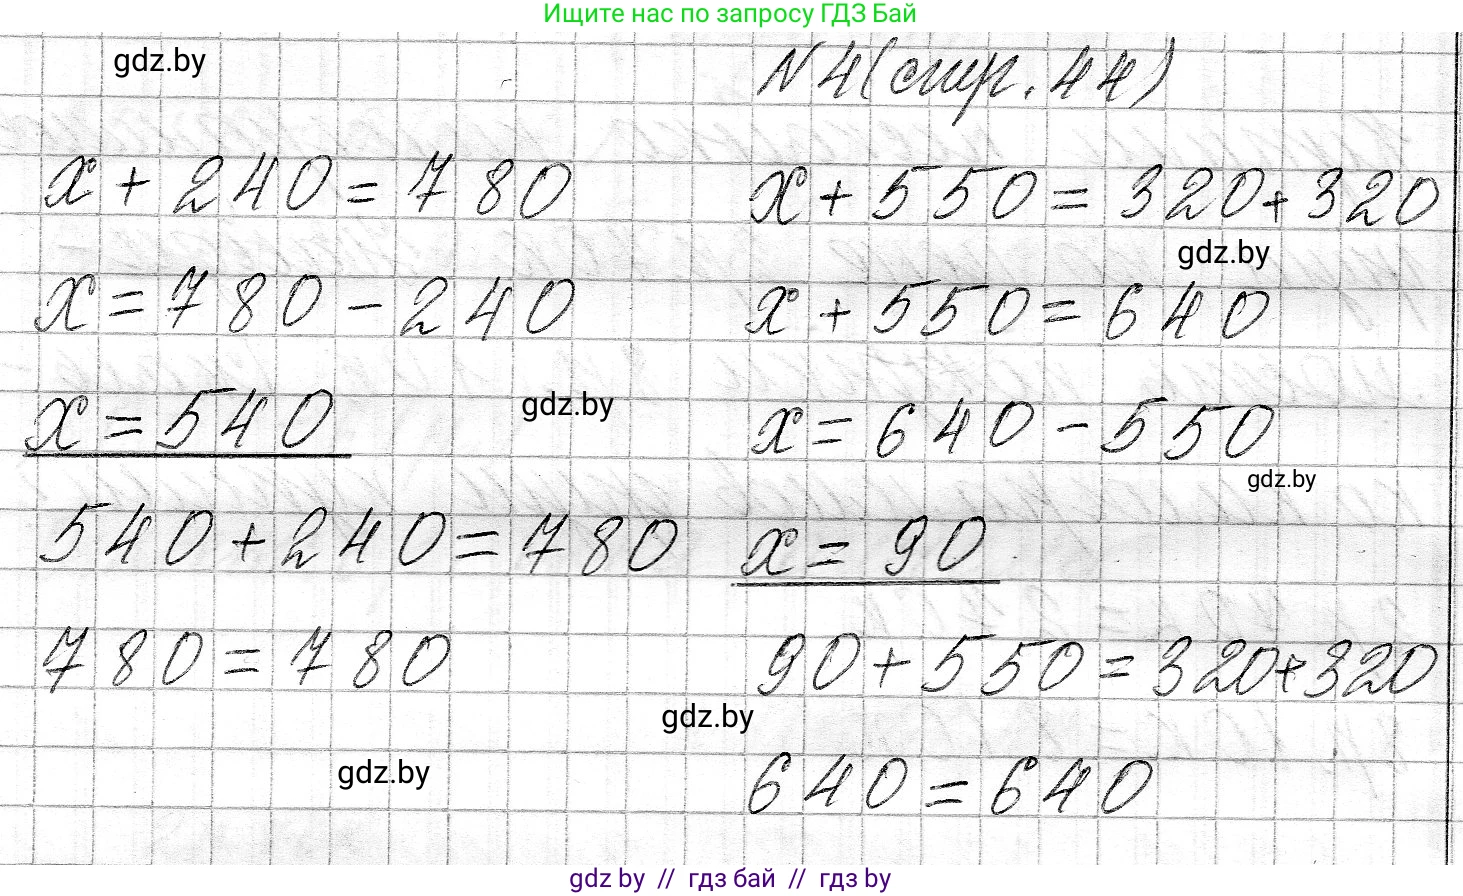 Ищите нас по запросу ГДЗ Бай
gdz.by
N4(стр. 44)
x + 240 = 780
x = 780 - 240
x = 540
540 + 240 = 780
780 = 780
x + 550 = 320 + 320
gdz.by
x + 550 = 640
gdz.by
x = 640 - 550
gdz.by
x = 90
90 + 550 = 320 + 320
gdz.by
640 = 640
gdz.by
gdz by // гдз бай // гдз by